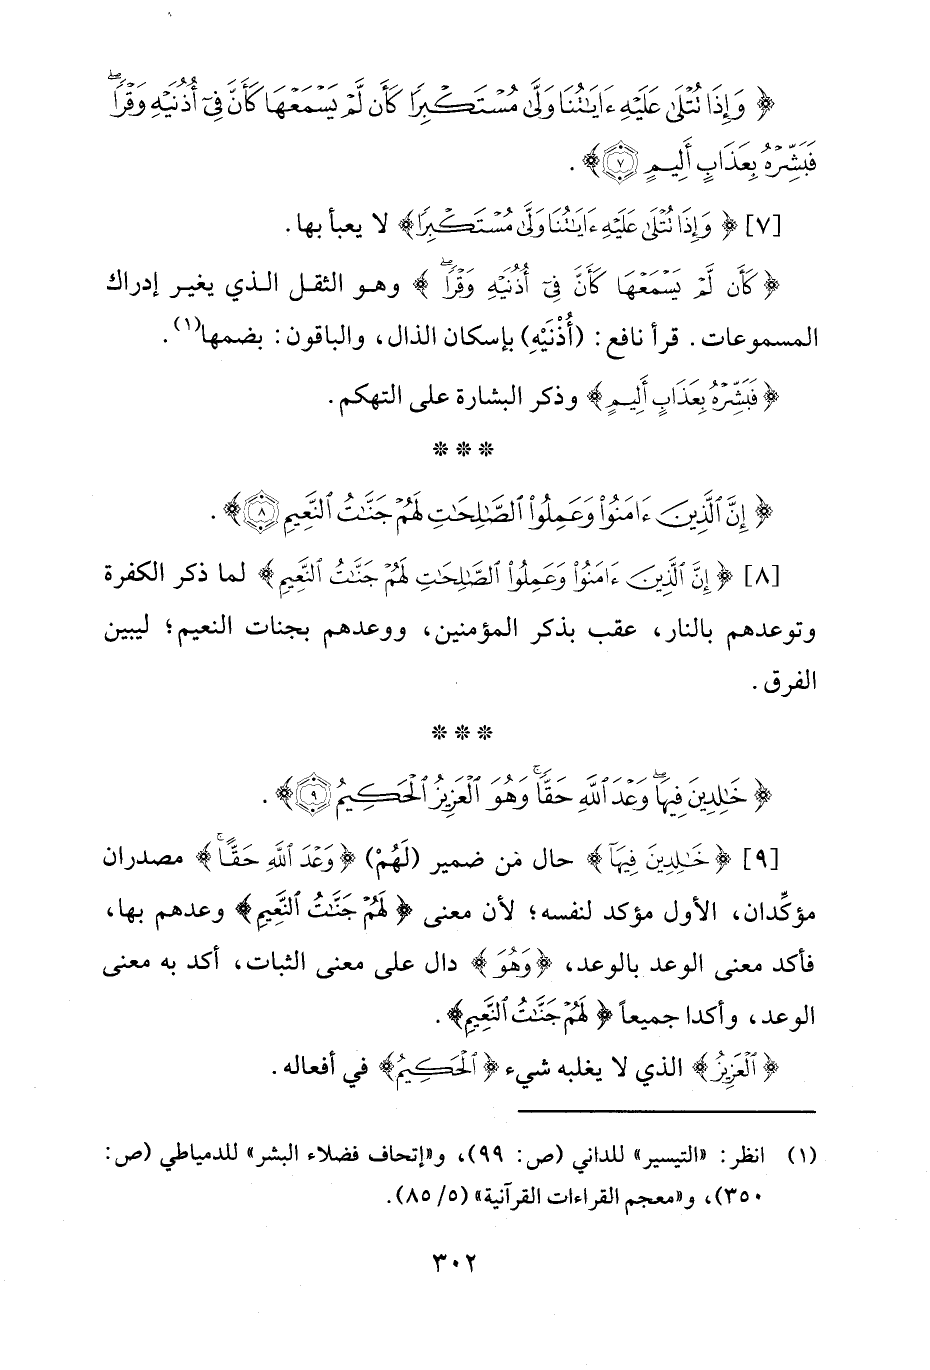 ﴿ وَإِذَا تُتْلَىٰ عَلَيْهِ ءَايَٰتُنَا وَلَّىٰ مُسْتَكْبِرًا كَأَن لَّمْ يَسْمَعْهَا كَأَنَّ فِىٓ أُذُنَيْهِ وَقْرًا ۖ
فَبَشِّرْهُ بِعَذَابٍ أَلِيمٍ ٧ ﴾ .
[٧] ﴿ وَإِذَا تُتْلَىٰ عَلَيْهِ ءَايَٰتُنَا وَلَّىٰ مُسْتَكْبِرًا ﴾ لا يعبأ بها.
﴿ كَأَن لَّمْ يَسْمَعْهَا كَأَنَّ فِىٓ أُذُنَيْهِ وَقْرًا ۖ ﴾ وهو الثقل الذي يغير إدراك
المسموعات. قرأ نافع: (أُذْنَيْهِ) بإسكان الذال، والباقون: بضمها(١).
﴿ فَبَشِّرْهُ بِعَذَابٍ أَلِيمٍ ﴾ وذكر البشارة على التهكم.
* * *
﴿ إِنَّ ٱلَّذِينَ ءَامَنُوا۟ وَعَمِلُوا۟ ٱلصَّٰلِحَٰتِ لَهُمْ جَنَّٰتُ ٱلنَّعِيمِ ٨ ﴾ .
[٨] ﴿ إِنَّ ٱلَّذِينَ ءَامَنُوا۟ وَعَمِلُوا۟ ٱلصَّٰلِحَٰتِ لَهُمْ جَنَّٰتُ ٱلنَّعِيمِ ﴾ لما ذكر الكفرة
وتوعدهم بالنار، عقب بذكر المؤمنين، ووعدهم بجنات النعيم؛ ليبين
الفرق.
* * *
﴿ خَٰلِدِينَ فِيهَا ۖ وَعْدَ ٱللَّهِ حَقًّا ۚ وَهُوَ ٱلْعَزِيزُ ٱلْحَكِيمُ ٩ ﴾ .
[٩] ﴿ خَٰلِدِينَ فِيهَآ ﴾ حال من ضمير (لَهُمْ) ﴿ وَعْدَ ٱللَّهِ حَقًّا ۚ ﴾ مصدران
مؤكِّدان، الأول مؤكد لنفسه؛ لأن معنى ﴿ لَهُمْ جَنَّٰتُ ٱلنَّعِيمِ ﴾ وعدهم بها،
فأكد معنى الوعد بالوعد، ﴿ وَهُوَ ﴾ دال على معنى الثبات، أكد به معنى
الوعد، وأكدا جميعاً ﴿ لَهُمْ جَنَّٰتُ ٱلنَّعِيمِ ﴾ .
﴿ ٱلْعَزِيزُ ﴾ الذي لا يغلبه شيء ﴿ ٱلْحَكِيمُ ﴾ في أفعاله.
(١) انظر: «التيسير» للداني (ص: ٩٩)، و«إتحاف فضلاء البشر» للدمياطي (ص:
٣٥٠)، و«معجم القراءات القرآنية» (٥/ ٨٥).
٣٠٢